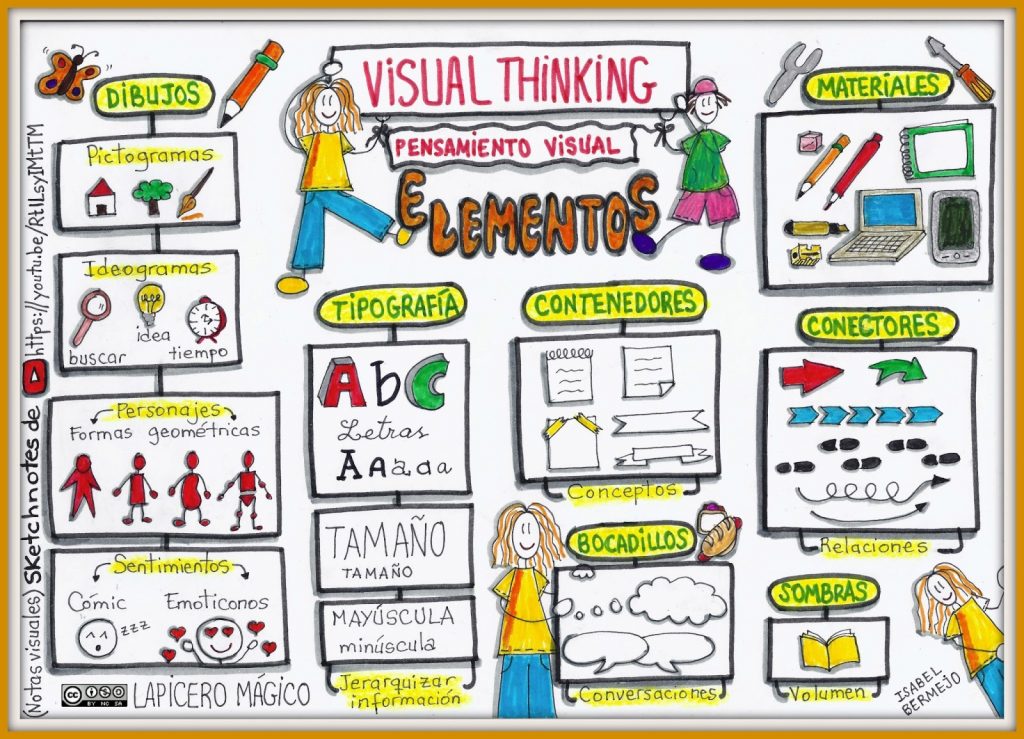 VISUAL THINKING
PENSAMIENTO VISUAL
ELEMENTOS
DIBUJOS
Pictogramas
Ideogramas
buscar
idea
tiempo
Personajes
Formas geométricas
Sentimientos
Cómic
Emoticonos
zzz
TIPOGRAFÍA
AbC
Letras
A A a a a
TAMAÑO
TAMAÑO
MAYÚSCULA
minúscula
Jerarquizar
información
CONTENEDORES
Conceptos
BOCADILLOS
Conversaciones
MATERIALES
CONECTORES
Relaciones
SOMBRAS
Volumen
(Notas visuales) Sketchnotes de https://youtu.be/RtlLsyIMtTM
CC BY NC SA
LAPICERO MÁGICO
ISABEL
BERMEJO